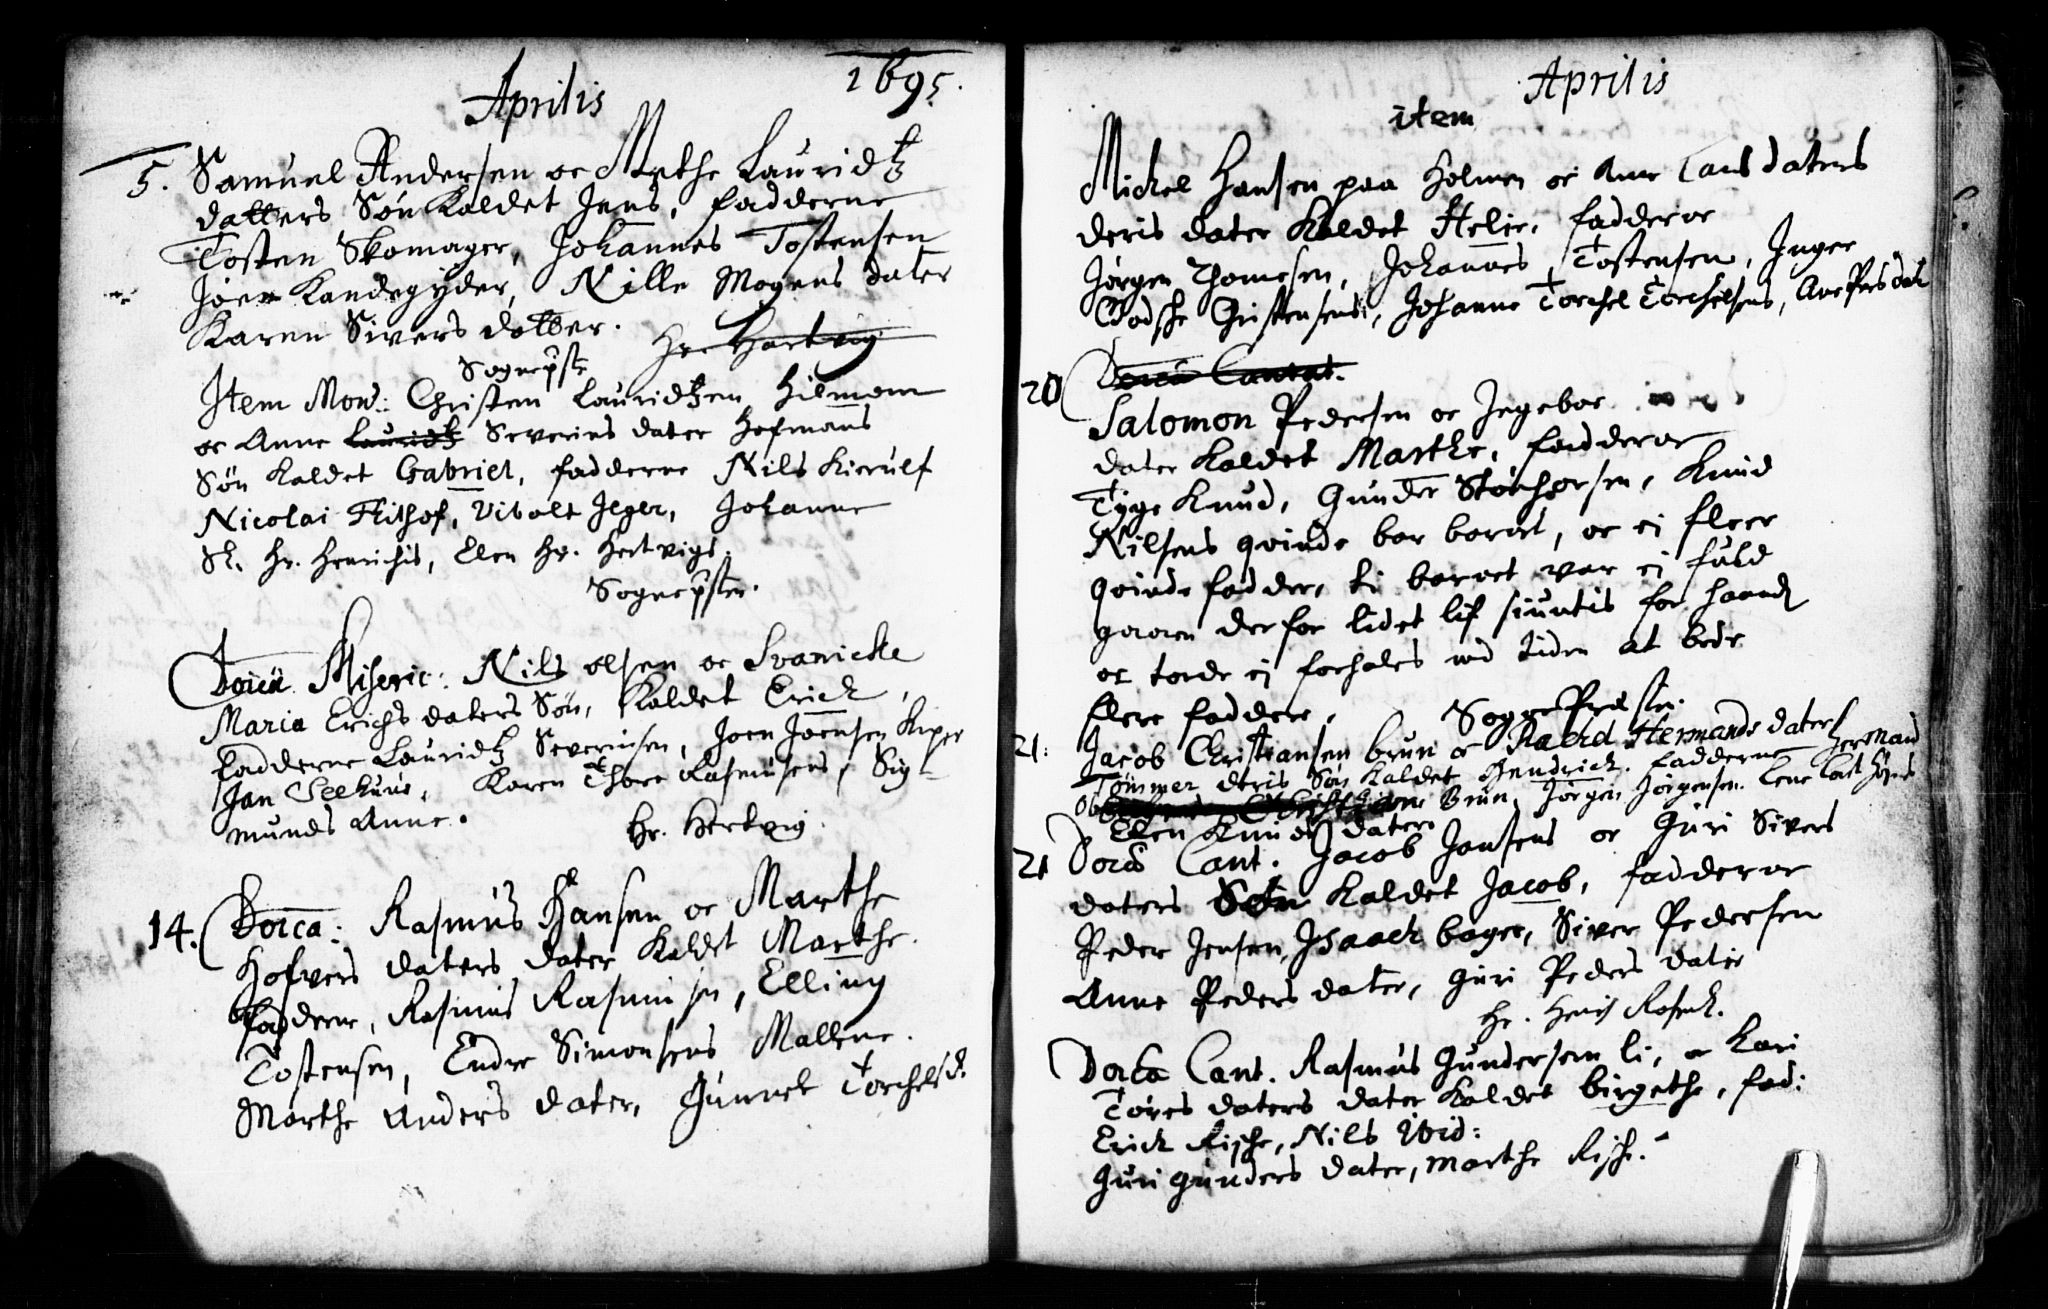 Aprilis 1695.
5. Samuel Andersen oc Mette Lauridtz
datters Søn Kaldet Jens, fadderne
Tosten Skomager, Johannes Tostensen
Joen Kandegyder, Nille Mogens dater
Karen Sivers datter. Hr. Hartvig
Sognepst
Item Mons: Christen Lauridtzen Hilmom
oc Anne Lauridtz Severins dater Hofmans
Søn Kaldet Gabriel, fadderne Nils Kierulf
Nicolai Frithof, Vibolt Jeger, Johanne
Sl. Hr. Henrichs, Elen Hr. Hertvigs.
Sognepster.
Doica Miseric: Nils olsen oc Svanicke
Maria Erichs daters Søn, Kaldet Erick,
fadderne Lauridtz Severinsen, Joen Joensen Kiper
Jan Seehuus, Karen Thore Rasmusens, Sig-
munds Anne. Hr. Hertvig
14. Doica: Rasmus Hansen oc Marthe
Hofvers daters dater Kaldet Marthe.
fadderne, Rasmus Rasmusen, Elling
Tostensen, Endre Simonsens Mallene.
Marthe Anders dater, Gunnel Torchelsd.
Aprilis
item
Mickel Hansen paa Holmen oc Anne Lars daters
deris dater Kaldet Helje, fadderne
Jørgen Thomesen, Johannes Tostensen, Inger
Godsche Christensens, Johanne Torchel Torchelsens, Ane Pers dat
20 Doica Cantat.
Salomon Pedersen oc Ingebor
dater Kaldet Marthe, fadderne
Tyge Knud, Gunder Størchorsen, Knud
Nilsens qvinde bar barnet, oc ei fleer
qvinde fadder, ti barnet var ei fuld
gaaen derfor lidet lif siuntis for haand
oc torde ei forhales med tiden at bede
flere faddere, SognePresten.
21: Jacob Christiansen brun oc Raghd Hermands daters
Tømmer deris Søn Kaldet Hendrick. fadderne Herman
Brun, Jørgen Jørgensen. Lene
Elen Knuds daters
21 Doica Cant. Jacob Jansens oc Guri Sivers
daters Søn Kaldet Jacob, fadderne
Peder Jensen, Isaack bager, Siver Pedersen
Anne Peders dater, Guri Peders dater
Hr. Henr Rosenk.
Doica Cant. Rasmus Gundersen li, oc Kari
Tores daters dater Kaldet birgethe, fad:
Erick Rische, Nils Wid:
Guri gunders dater, Marthe Risch.